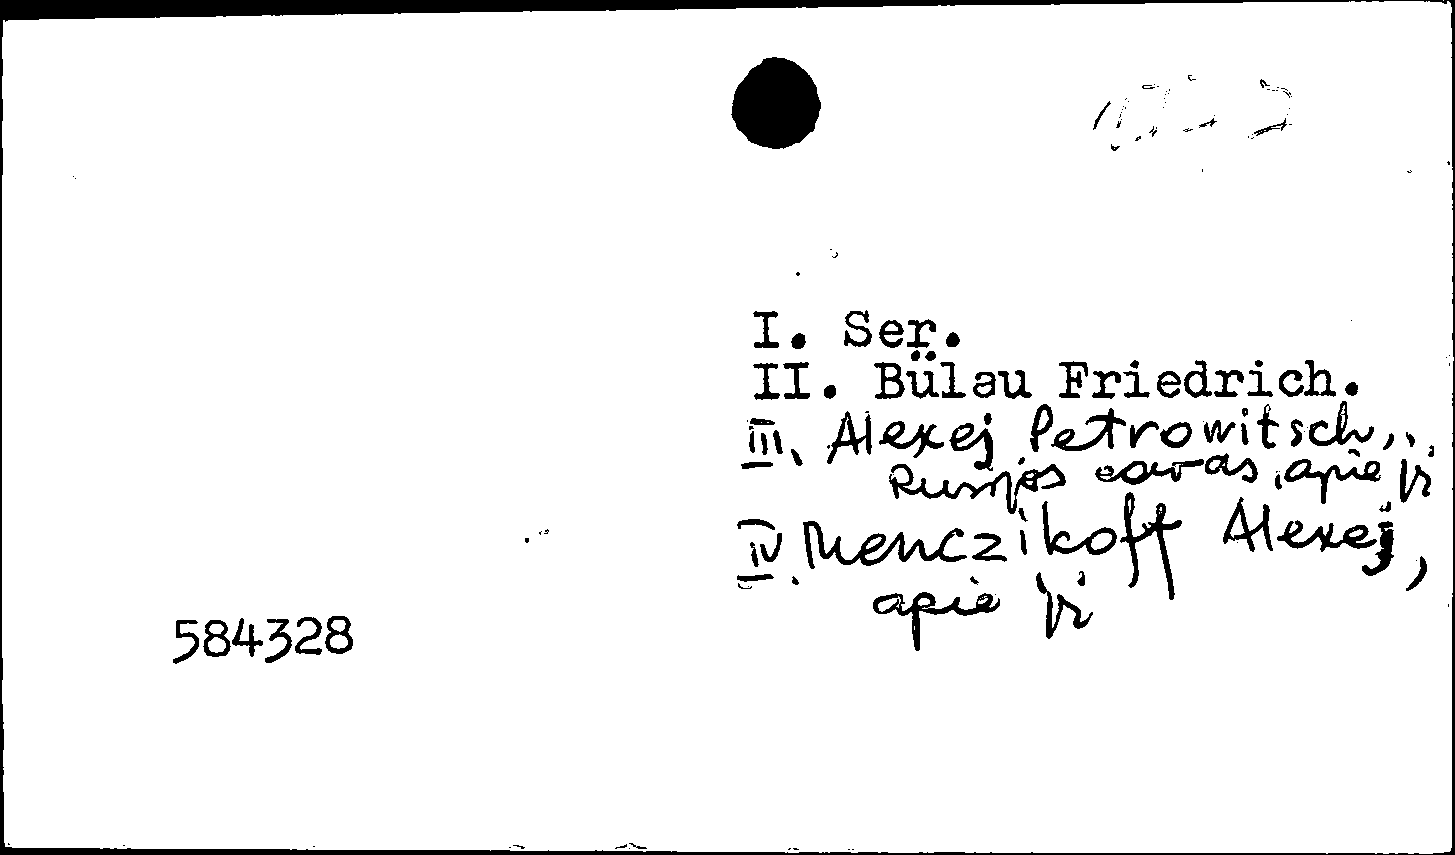 I. Ser.
II. Bülau Friedrich.
III. Alexej Petrowitsch,
Rusijos caras, apie jį
IV. Menczikoff Alexej,
apie jį
584328